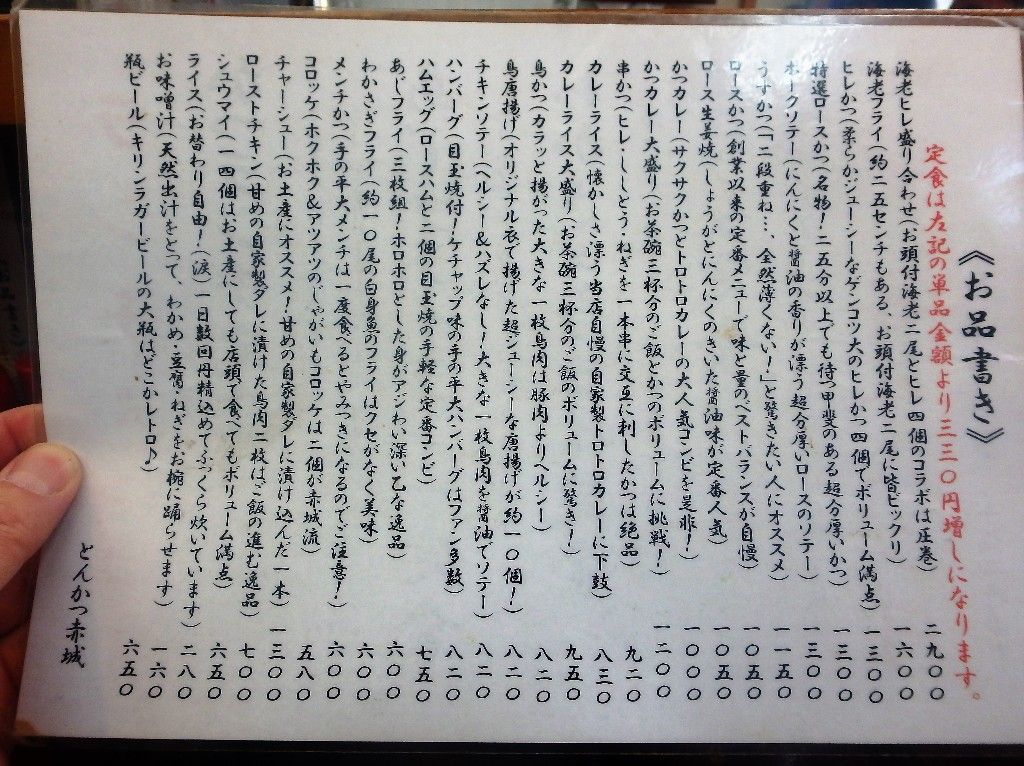 《お品書き》
定食は左記の単品金額より三三〇円増しになります。
海老ヒレ盛り合わせ(お頭付海老二尾とヒレ四個のコラボは圧巻) 二九〇〇
海老フライ(約二五センチもある、お頭付海老二尾に皆ビックリ) 一六〇〇
ヒレかつ(柔らかジューシーなゲンコツ大のヒレかつ四個でボリューム満点) 一三〇〇
特選ロースかつ(名物!二五分以上でも待つ甲斐のある超分厚いかつ) 一三〇〇
ポークソテー(にんにくと醤油の香りが漂う超分厚いロースのソテー) 一三〇〇
うすかつ(「二段重ね…、全然薄くない!」と驚きたい人にオススメ) 一一五〇
ロースかつ(創業以来の定番メニューで味と量のベストバランスが自慢) 一〇五〇
ロース生姜焼(しょうがとにんにくのきいた醤油味が定番人気) 一〇五〇
かつカレー(サクサクかつとトロトロカレーの大人気コンビを是非!) 一〇〇〇
かつカレー大盛り(お茶碗三杯分のご飯とかつのボリュームに挑戦!) 一二〇〇
串かつ(ヒレ・ししとう・ねぎを一本串に交互に刺したかつは絶品) 九二〇
カレーライス(懐かしさ漂う当店自慢の自家製トロトロカレーに下鼓) 八三〇
カレーライス大盛り(お茶碗三杯分のご飯のボリュームに驚き!) 九五〇
鳥かつ(カラッと揚がった大きな一枚鳥肉は豚肉よりヘルシー) 八二〇
鳥唐揚げ(オリジナル衣で揚げた超ジューシーな唐揚げが約一〇個!) 八二〇
チキンソテー(ヘルシー&ハズレなし!大きな一枚鳥肉を醤油でソテー) 八二〇
ハンバーグ(目玉焼付!ケチャップ味の手の平大ハンバーグはファン多数) 八二〇
ハムエッグ(ロースハムと二個の目玉焼の手軽な定番コンビ) 七五〇
あじフライ(三枚組!ホロホロとした身がアジわい深い乙な逸品 六〇〇
わかさぎフライ(約一〇尾の白身魚のフライはクセがなく美味) 六〇〇
メンチかつ(手の平大メンチは一度食べるとやみつきになるのでご注意!) 六〇〇
コロッケ(ホクホク&アツアツのじゃがいもコロッケは二個が赤城流) 五八〇
チャーシュー(お土産にオススメ!甘めの自家製ダレに漬け込んだ一本) 一三〇〇
ローストチキン(甘めの自家製ダレに漬けた鳥肉二枚はご飯の進む逸品) 七〇〇
シュウマイ(一四個はお土産にしても店頭で食べてもボリューム満点) 六五〇
ライス(お替わり自由!(涙)一日数回丹精込めてふっくら炊いています) 二八〇
お味噌汁(天然出汁をとって、わかめ・豆腐・ねぎをお椀に踊らせます) 一六〇
瓶ビール(キリンラガービールの大瓶はどこかレトロ♪) 六五〇
とんかつ赤城